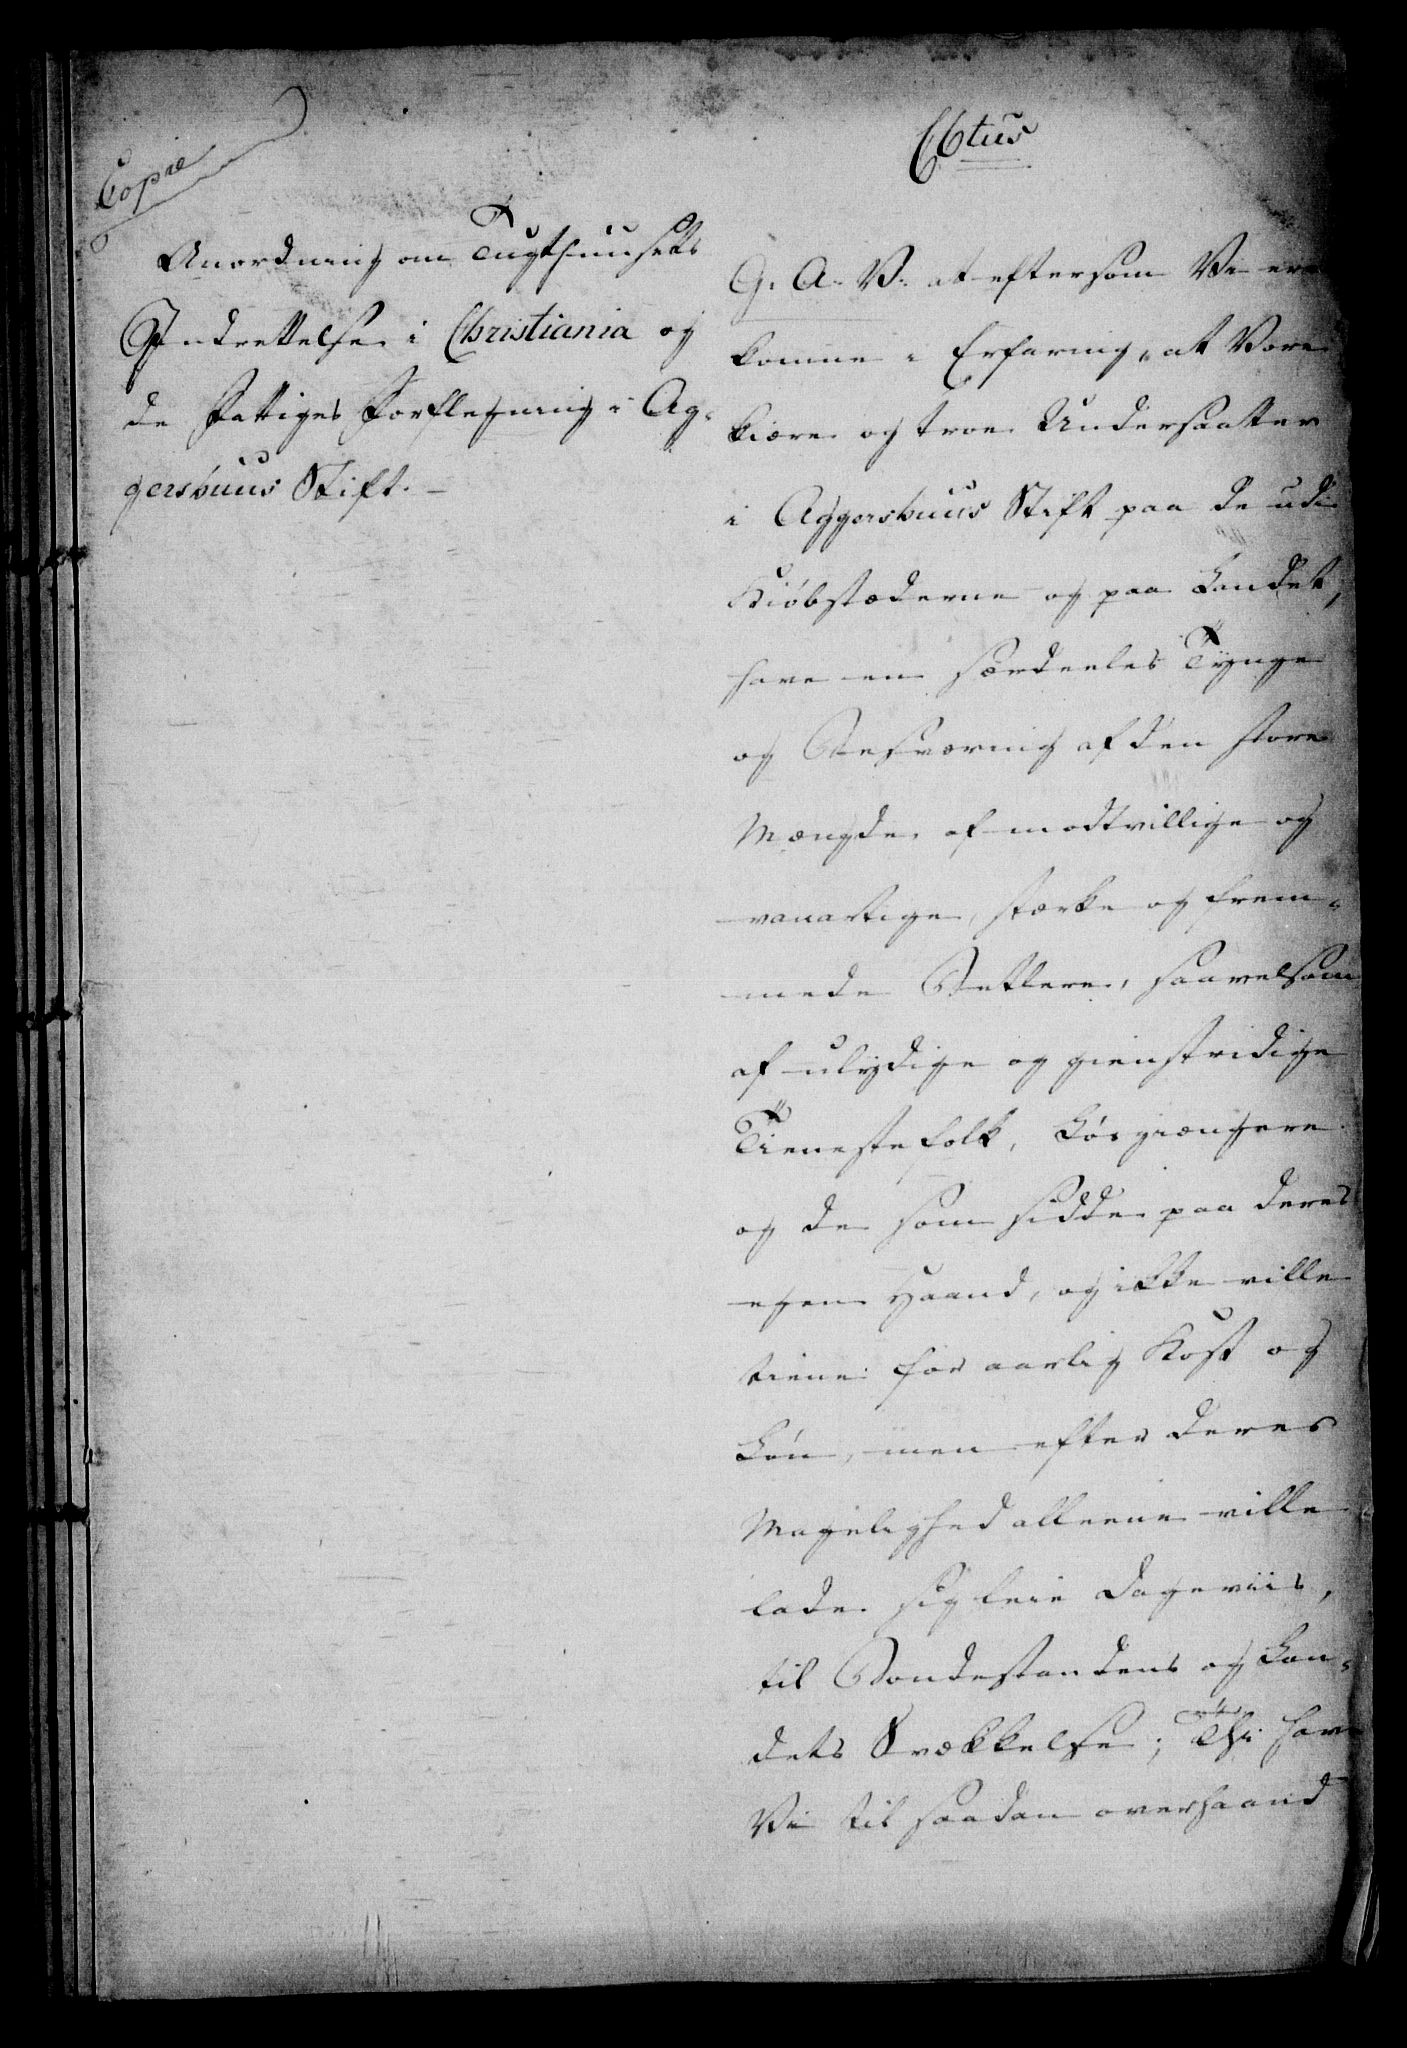 Copie
Anordning om Tugthuusets
Indrettelse i Christiania og
de Fattiges Forflegning i Ag-
gershuus Stift. –
C 6tus
G. A. V. at eftersom Vi ere
komne i Erfaring, at Vore
kiære og troe Undersaatter
i Aggershuus Stift paa de udi
Kiøbstæderne og paa Landet,
have en særdeeles Tynge
og Besværing af den store
Mængde af modtvillige og
vanartige, stærke og frem-
mede Betlere, saavelsom
af ulydige og gienstridige
Tienestefolk, Løsgiængere
og de som sidde paa deres
egen Haand, og ikke ville
tiene for aarlig Kost og
Løn, men efter deres
Magelighed alleene ville
lade sig leie Dageviis,
til Bondestandens og Lan-
dets Svækkelse; Thi have
Vi til saadan overhaand